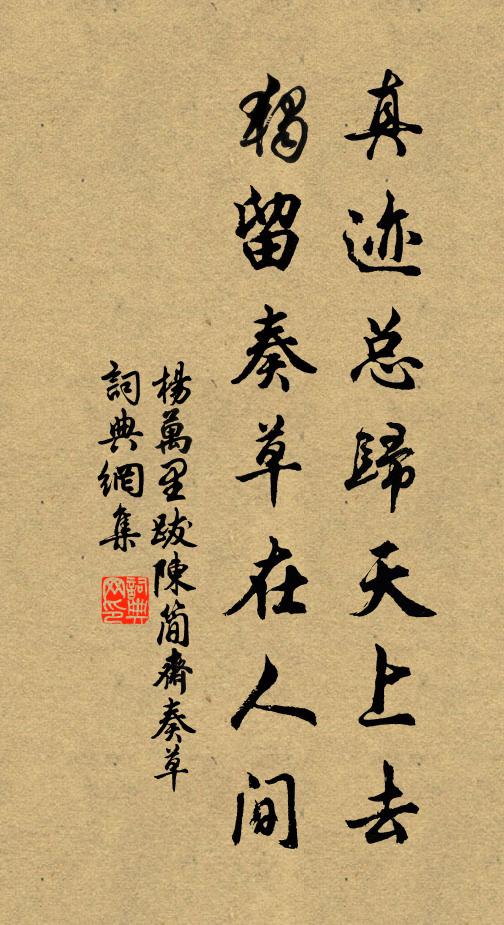 真迹总歸天上去
獨留奏草在人间
楊萬里跋陳简齋奏草
詞典網集
詞典网印